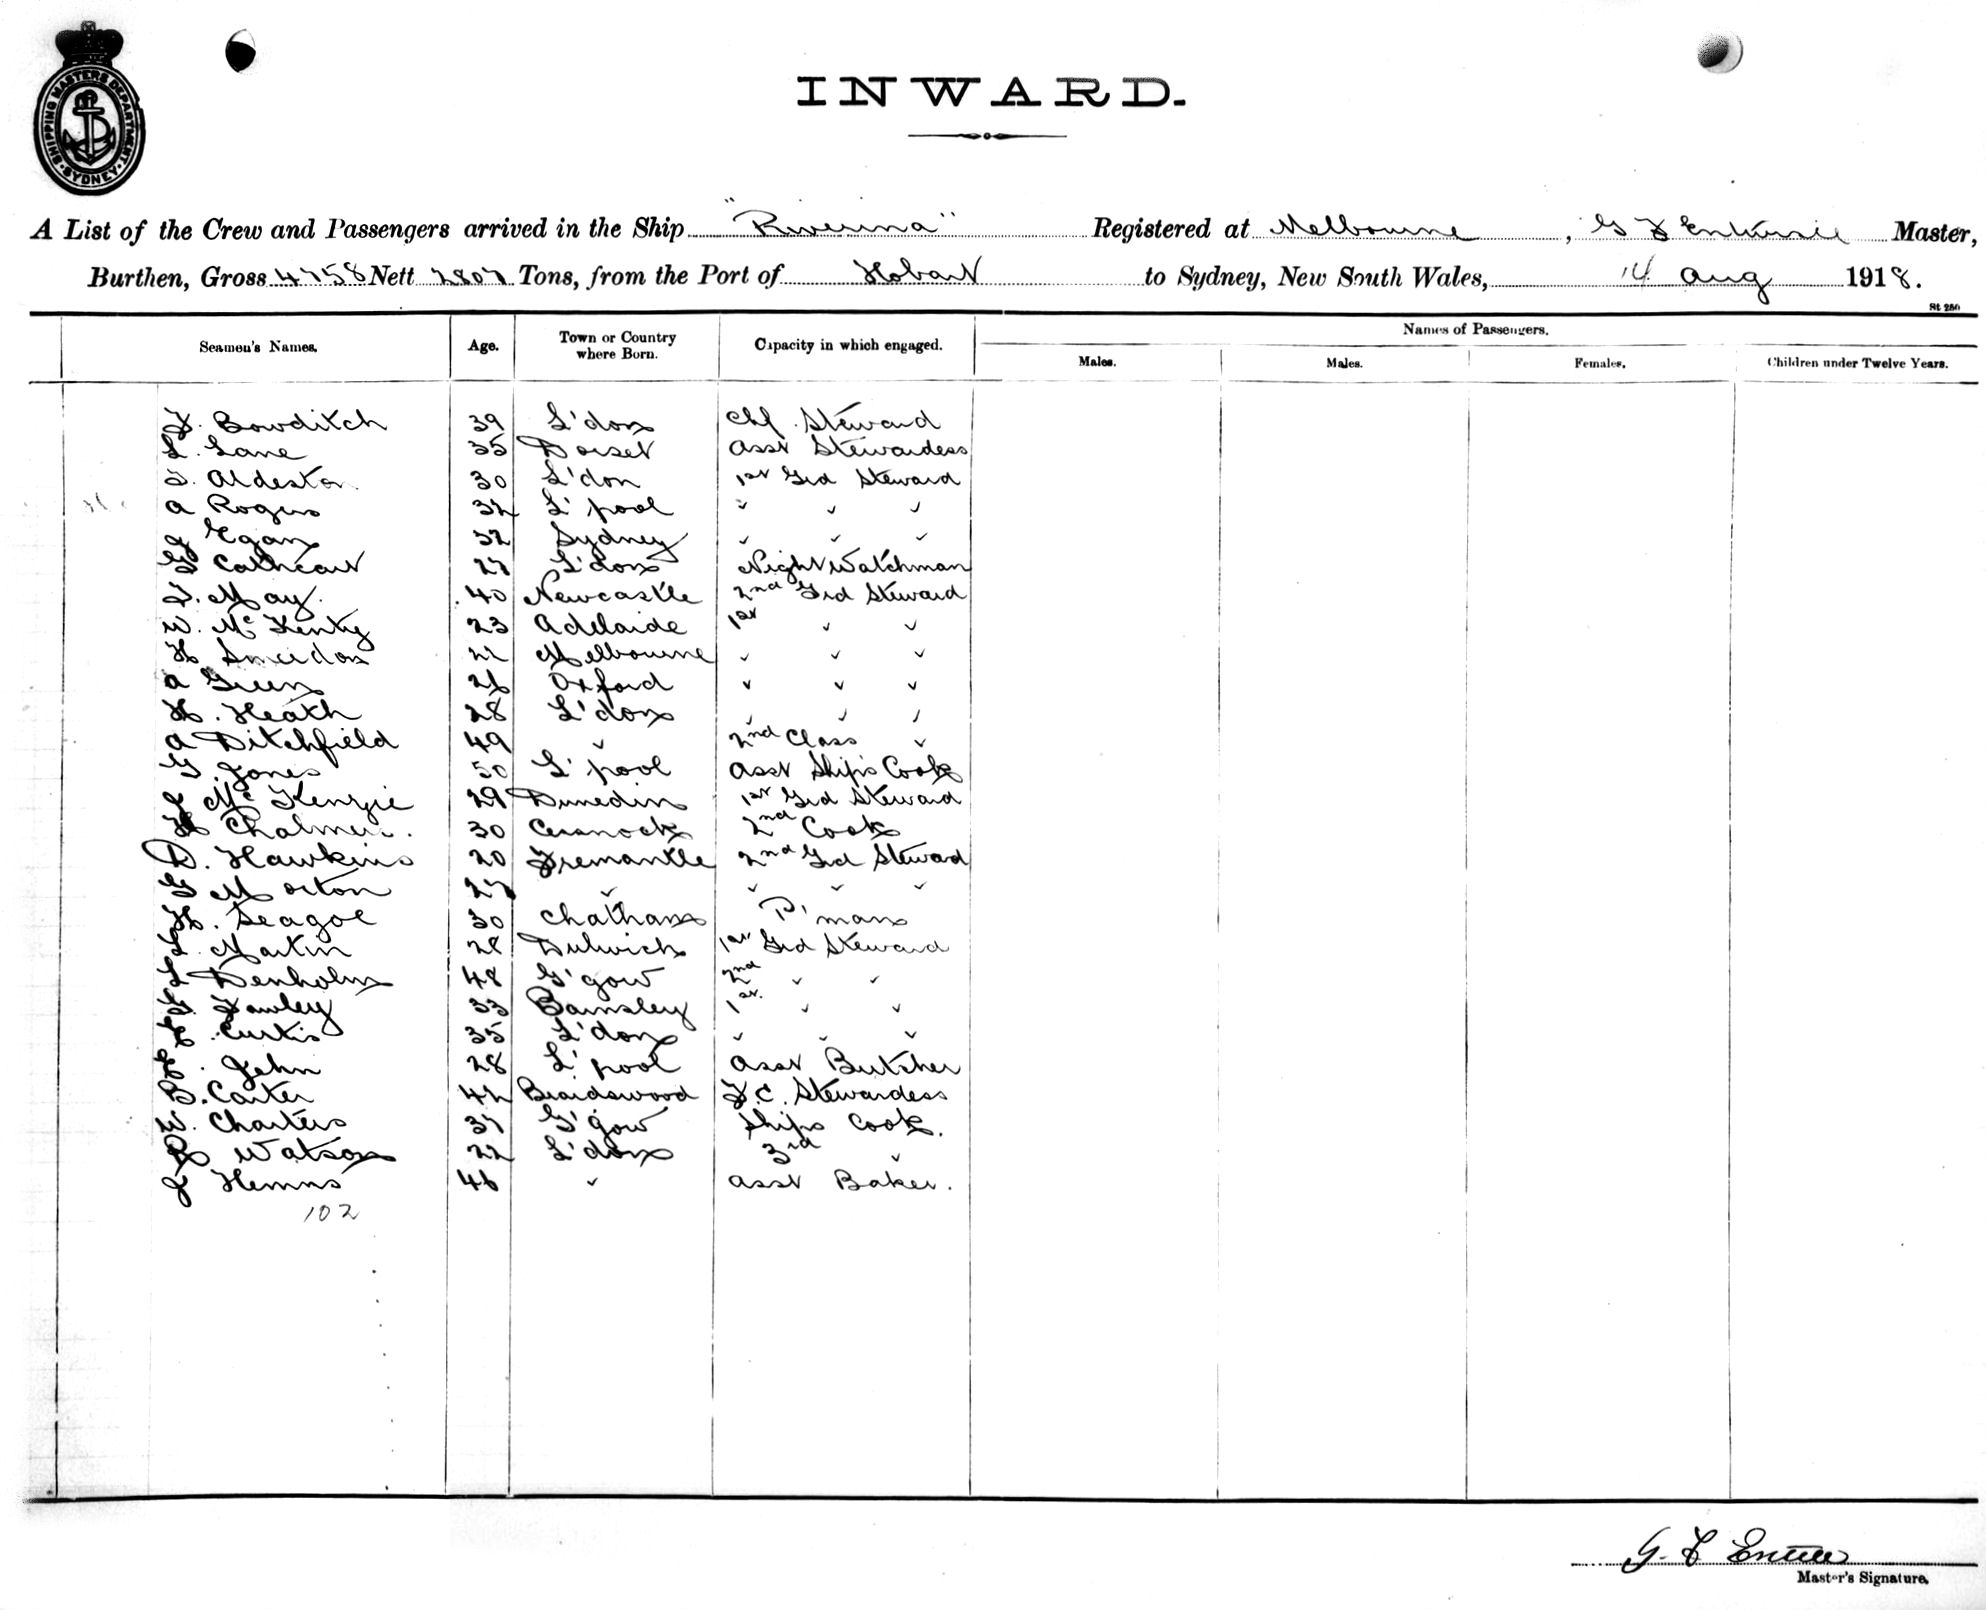 SHIPPING MASTERS DEPARTMENT
SYDNEY
INWARD.
A List of the Crew and Passengers arrived in the Ship "Riverina" Registered at Melbourne, G F Master,
Burthen, Gross 4758 Nett 2807 Tons, from the Port of Hobart to Sydney, New South Wales, 14 Aug 1918.
St 280
Names of Passengers.
Seamen's Names. Age. Town or Country where Born. Capacity in which engaged. Males. Males. Females. Children under Twelve Years.
F. Bowditch 39 L'don Chf. Steward
L. Lane 35 Dorset Asst Stewardess
Aldeston 30 L'don 1st Grd Steward
A Rogers 32 L'pool " " "
J Egan 32 Sydney " " "
G Cathcart 27 L'don Night Watchman
F. May. 40 Newcastle 2nd Grd Steward
W. Mc 23 Adelaide 1st " "
H Smerdon 22 Melbourne " " "
A Green 26 Oxford " " "
H. Heath 28 L'don " " "
A Ditchfield 49 " 2nd Class "
G. Jones 50 L'pool Asst Ship's Cook
J McKenzie 29 Dunedin 1st Grd Steward
H Chalmers. 30 Cessnock 2nd Cook
D. Hawkins 20 Fremantle 2nd Grd Steward
G Morton 27 " " " "
H. Seagoe 30 Chatham P'man
L. Martin 28 Dulwich 1st Grd Steward
L Denholm 48 G'gow 2nd " "
G. Fawley 33 Barnsley 1st. " "
Curtis 35 L'don " " "
John 28 L'pool Asst Butcher
B. Carter 42 Braidswood F.C. Stewardess
W. Charters 37 G'gow Ships Cook.
R Watson 22 L'don 3rd "
J Hemns 46 " Asst Baker.
102
G. F
Master's Signature.